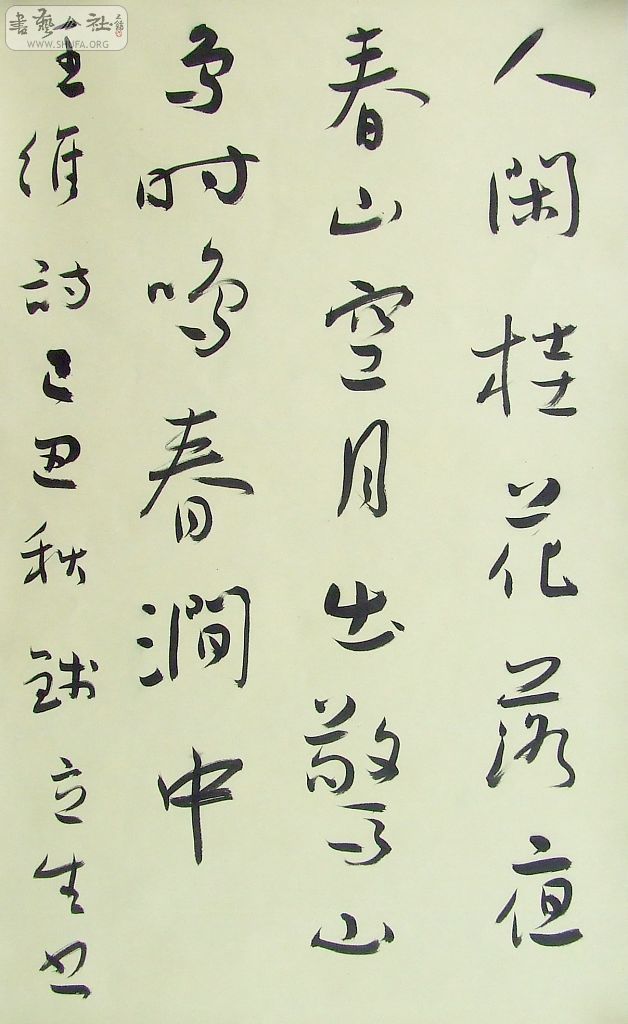 書藝公社
WWW.SHUFA.ORG
人閑桂花落夜
春山空月出驚山
鳥时鳴春澗中
王維詩己丑秋錢立生书